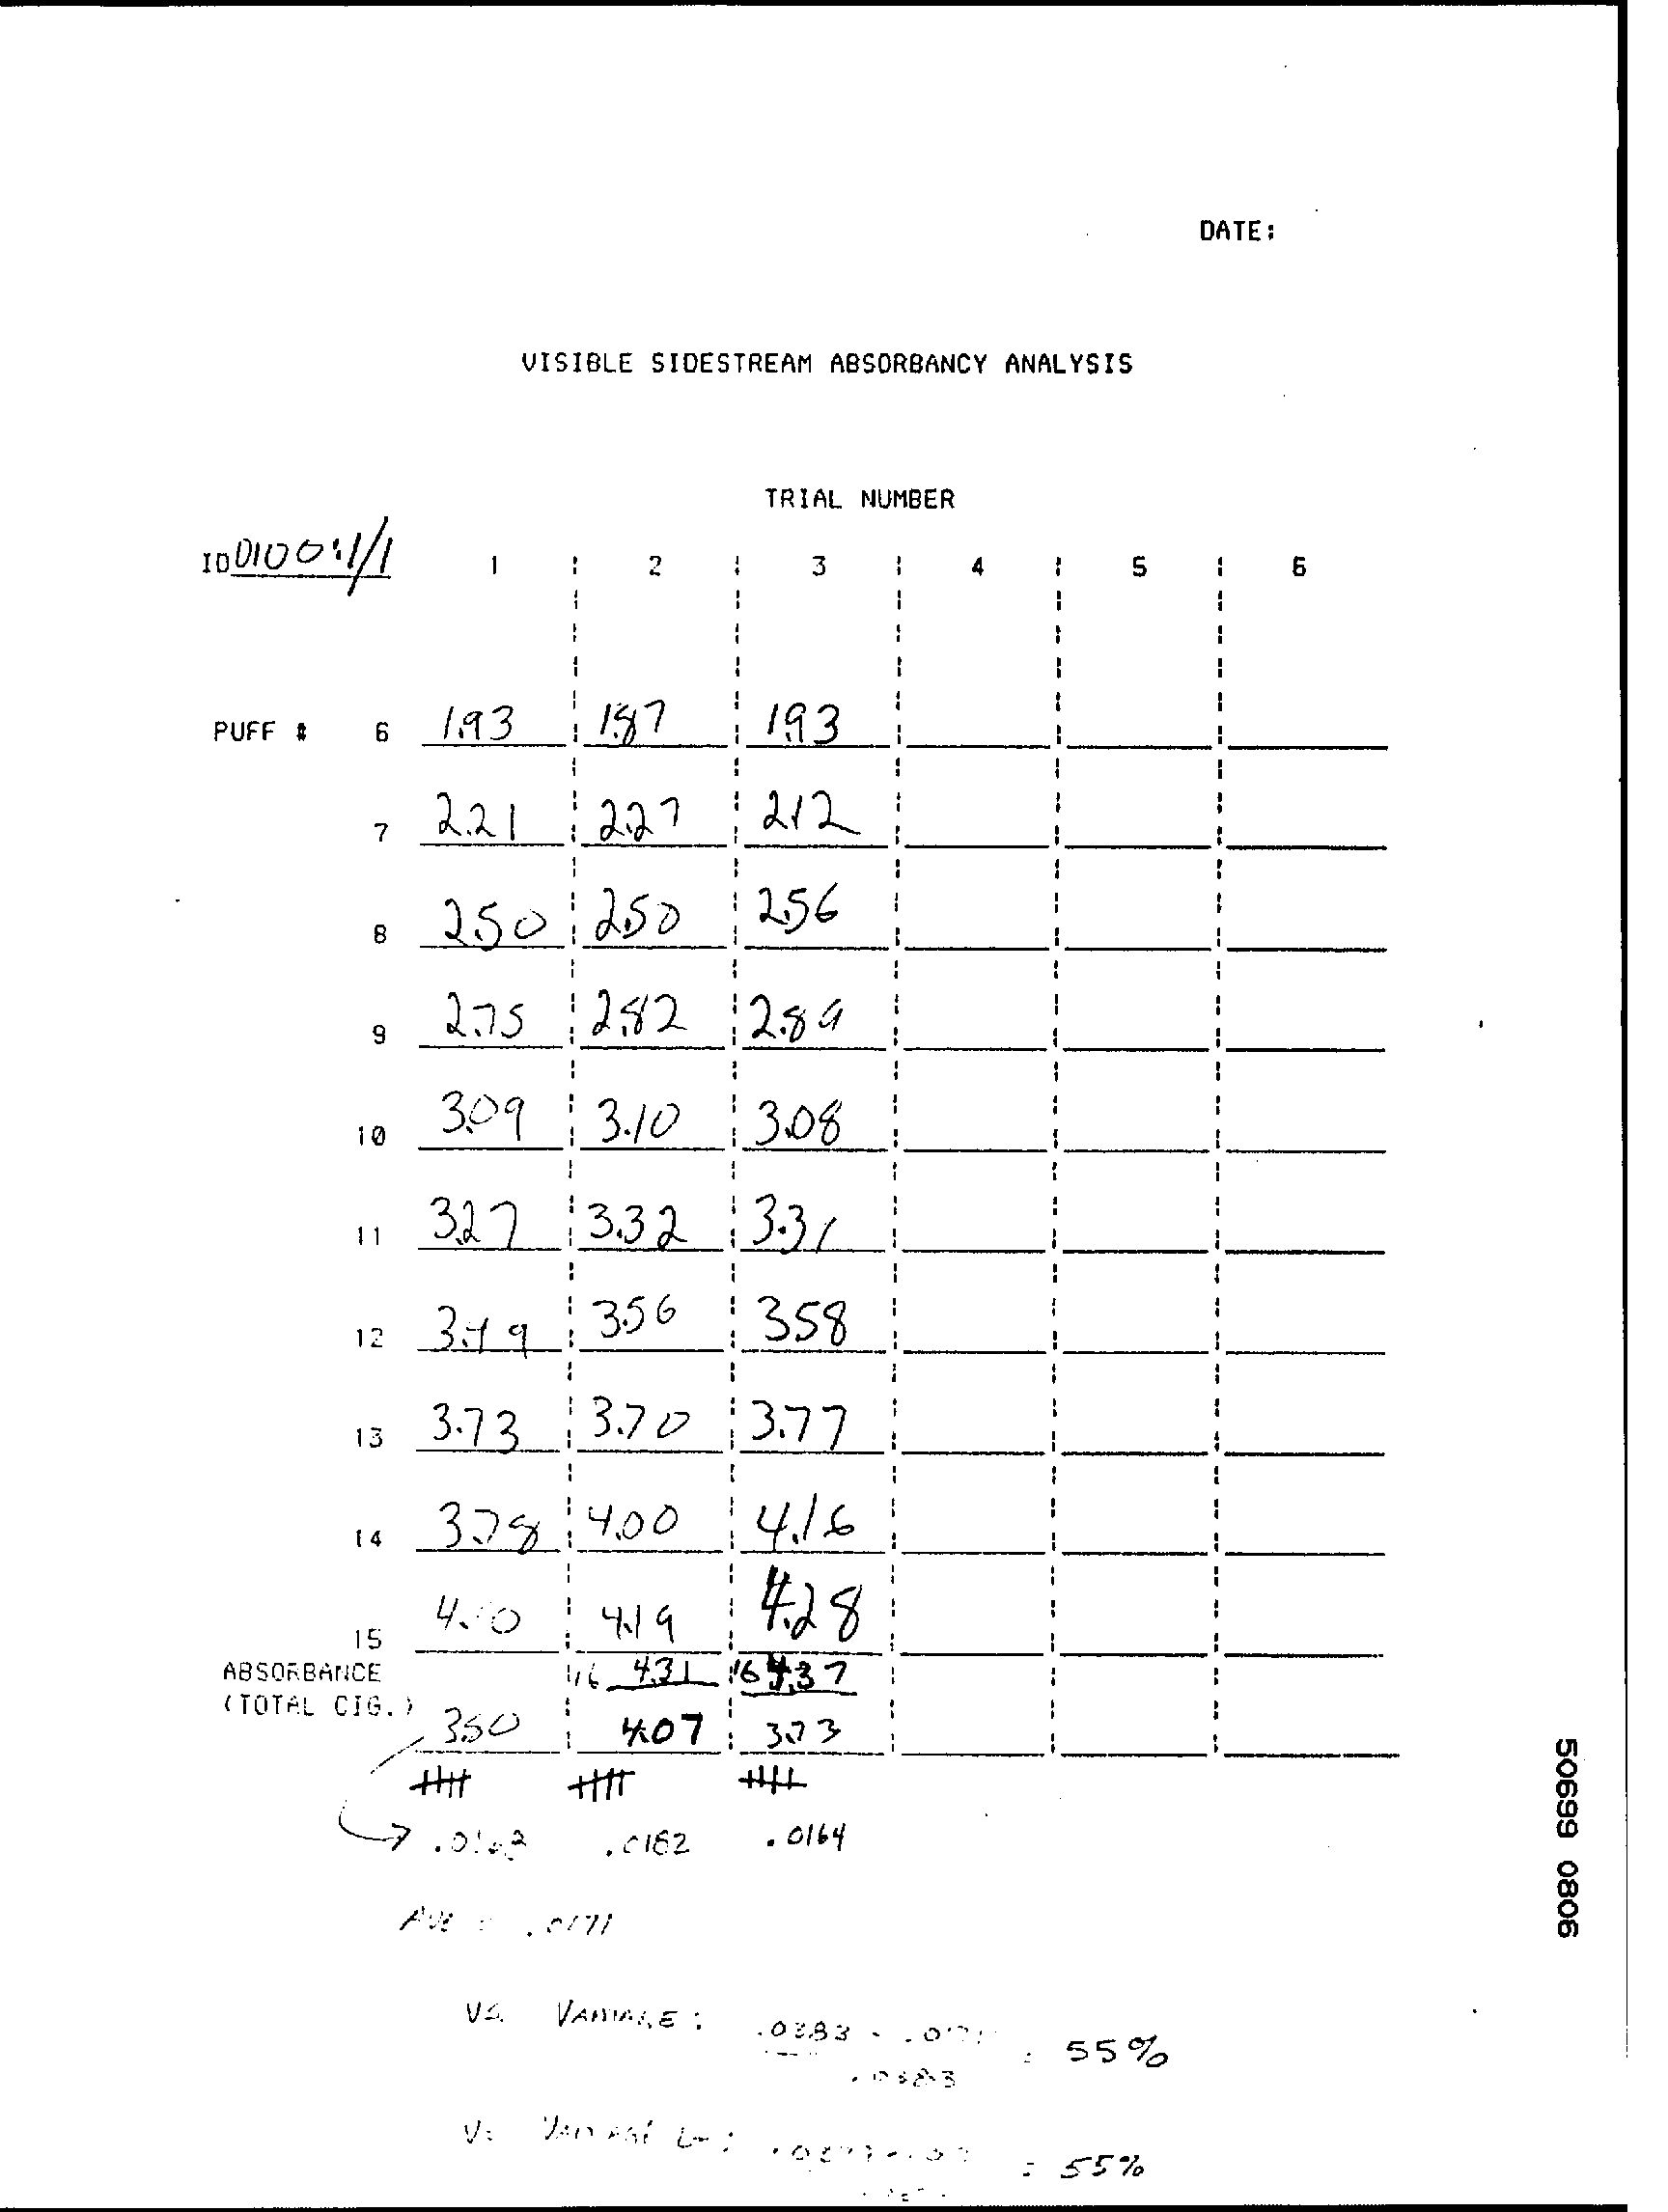 DATE:
VISIBLE SIDESTREAM ABSORBANCY ANALYSIS
TRIAL NUMBER
ID 0100:1/1 1 2 3 4 5 6
PUFF # 6 1.93 1.87 1.93
7 2.21 2.27 2.12
8 2.50 2.50 2.56
9 2.75 2.82 2.89
10 3.09 3.10 3.08
11 3.27 3.32 3.31
12 3.49 3.56 3.58
13 3.73 3.70 3.77
14 3.78 4.00 4.16
15 4.19 4.28
ABSORBANCE 16 4.31 16 4.37
(TOTAL CIG.) 3.50 4.07 3.73
.0182 .0164
AVE = .0171
VS. VANTAGE: .0383 - .0171 = 55%
.0383
= 55%
50699 0806